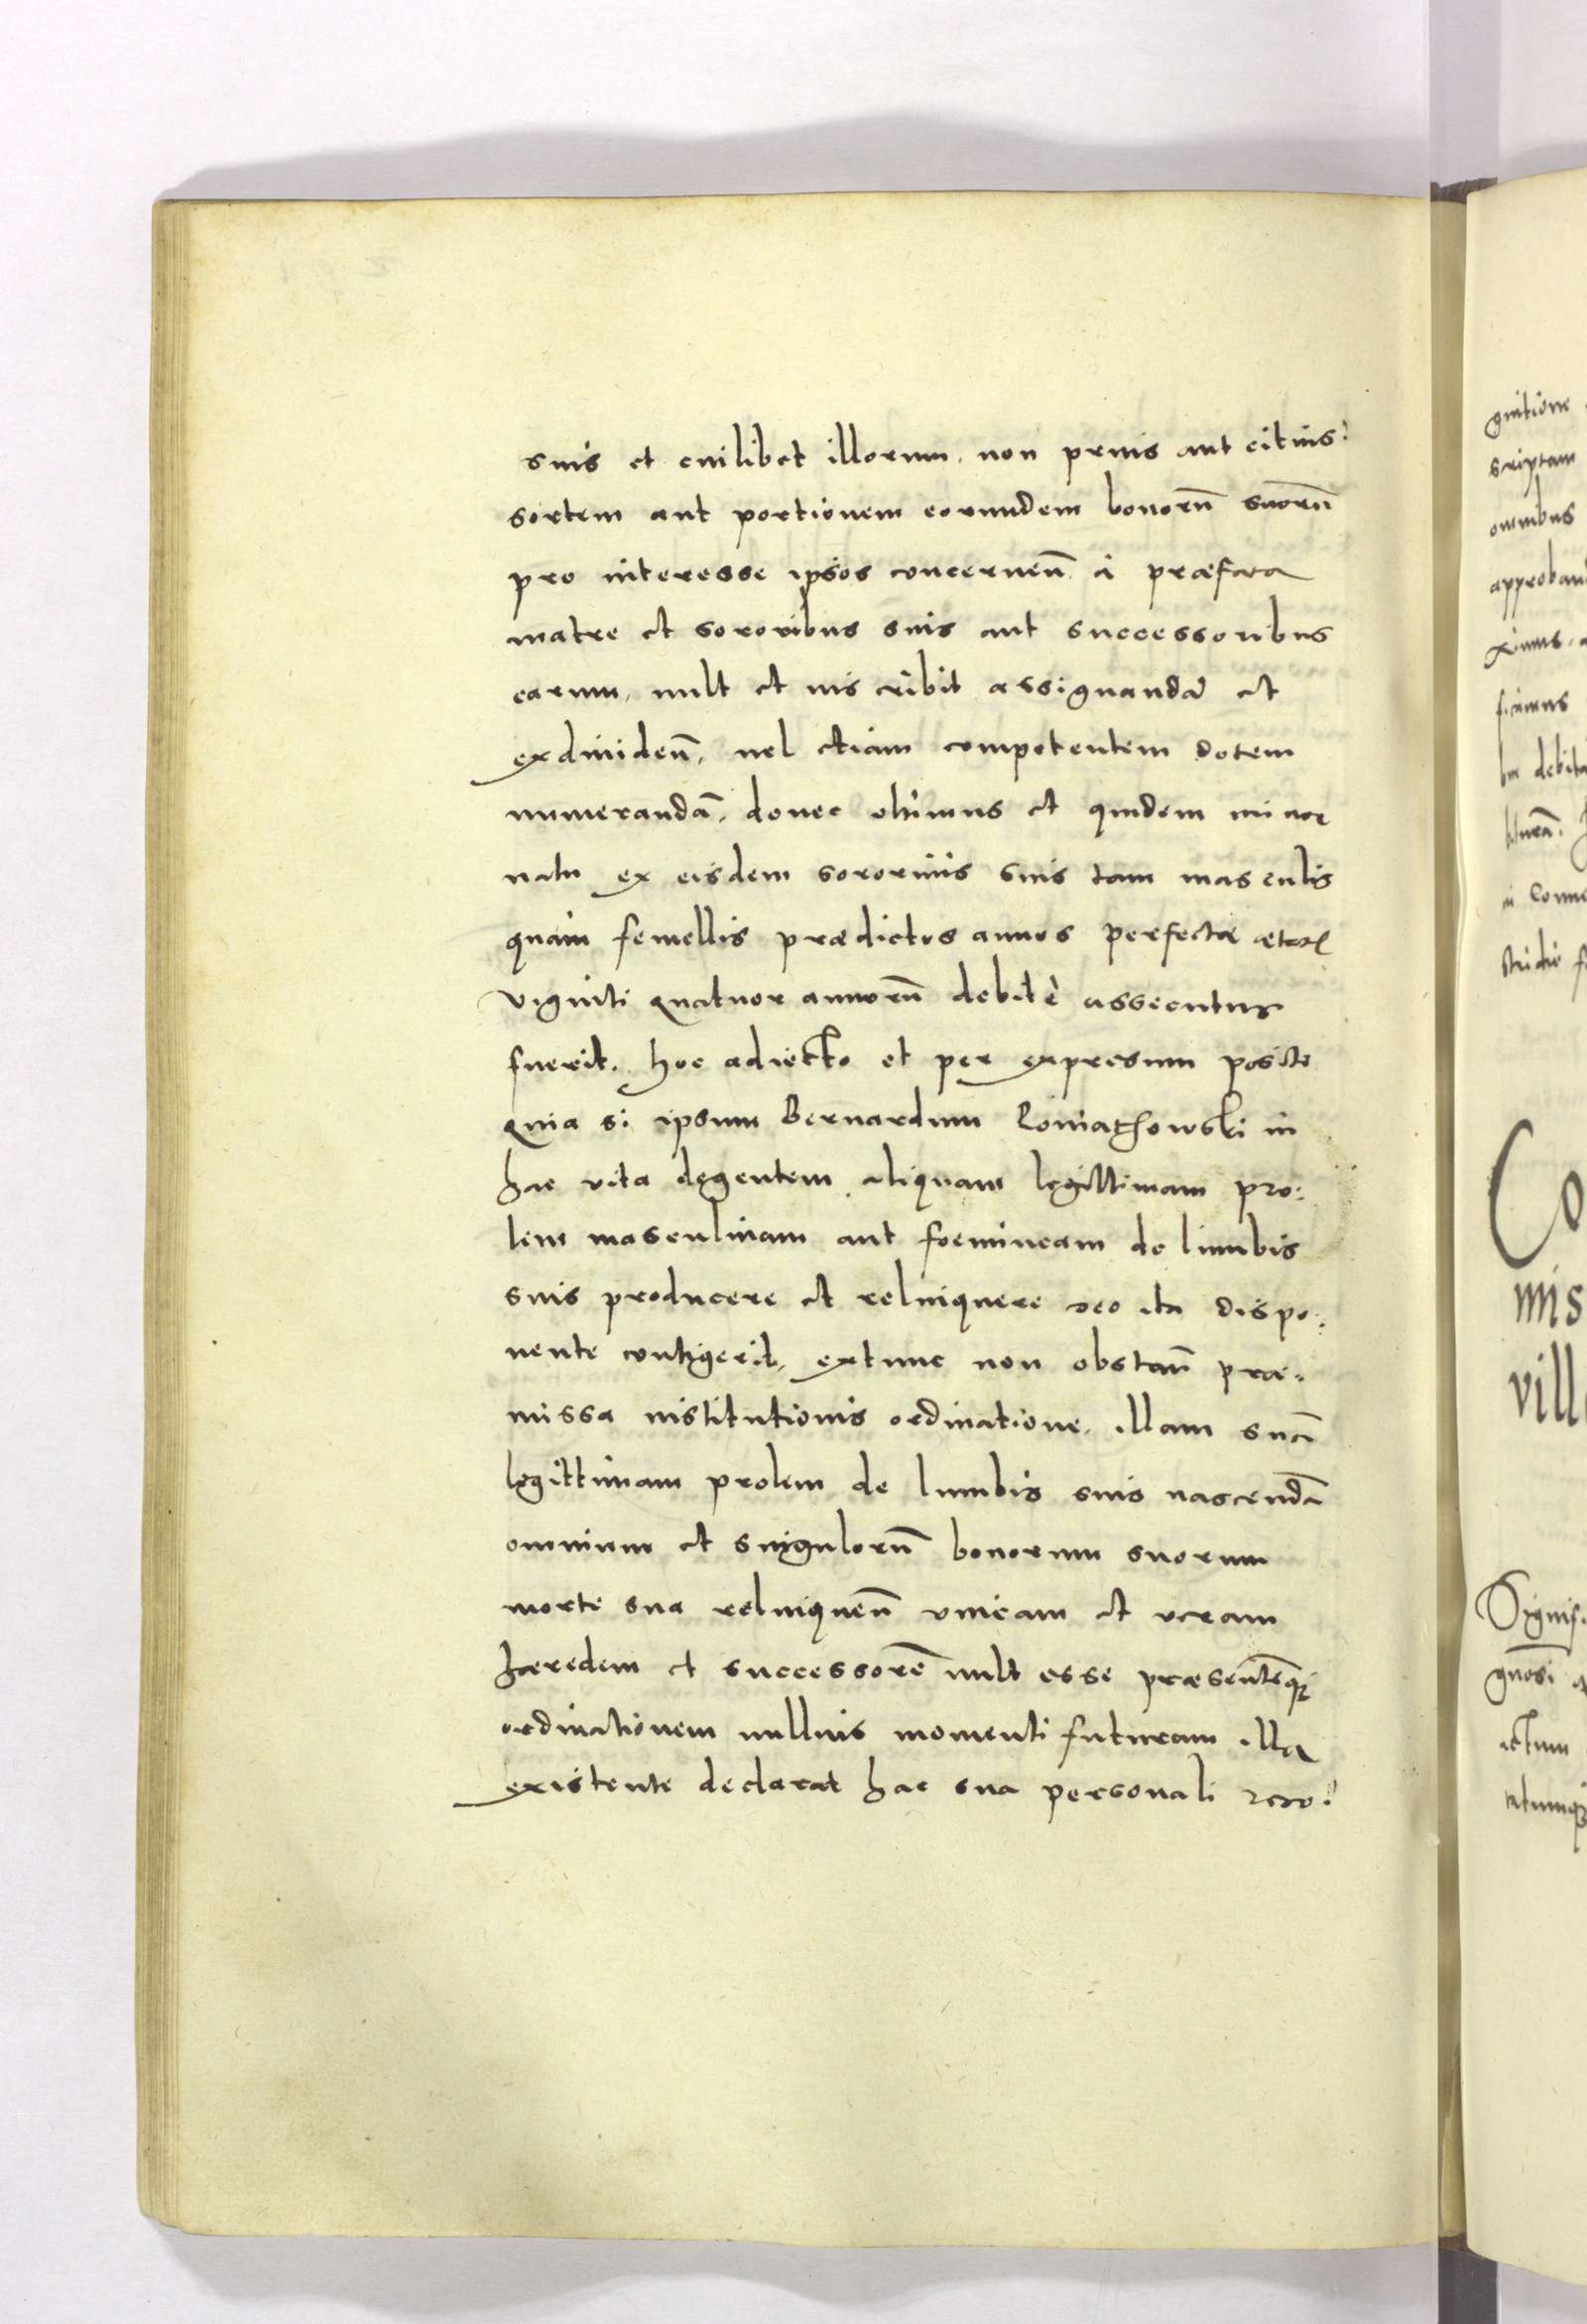 suis et cuilibet illorum, non prius aut citius:
sortem aut portionem eorundem bonorū suorū
pro interesse ipsos concerneñ à præfata
matre et sororibus suis aut successoribus
earum, vult et inscribit assignandā et
exdiuideñ, uel etiam competentem dotem
numerandā, donec ultimus et quidem minor
natu ex eisdem sororinis suis tam masculis
quàm femellis prædictos annos perfectæ ætatis
viginti quatuor annorū debitè assecutus
fuerit, hoc adiecto et per expresum posito
quia si ipsum Bernardum in
hac vita degentem aliquam legittimam pro:
lem masculinam aut foemineam de lumbis
suis producere et relinquere deo ita dispo:
nente contigerit, extunc non obstañ præ:
missa institutionis ordinatione, illam suā
legittimam prolem de lumbis suis nascendā
omnium et singulorū bonorum suorum
morte sua relinqueñ vnicam et veram
hæredem et successorē vult esse præsentēq;
ordinationem nullius momenti futuram illa
existente declarat hac sua personali reco:
gnitione
scriptam
omnibus
debita
Co
mis
vill
ctum